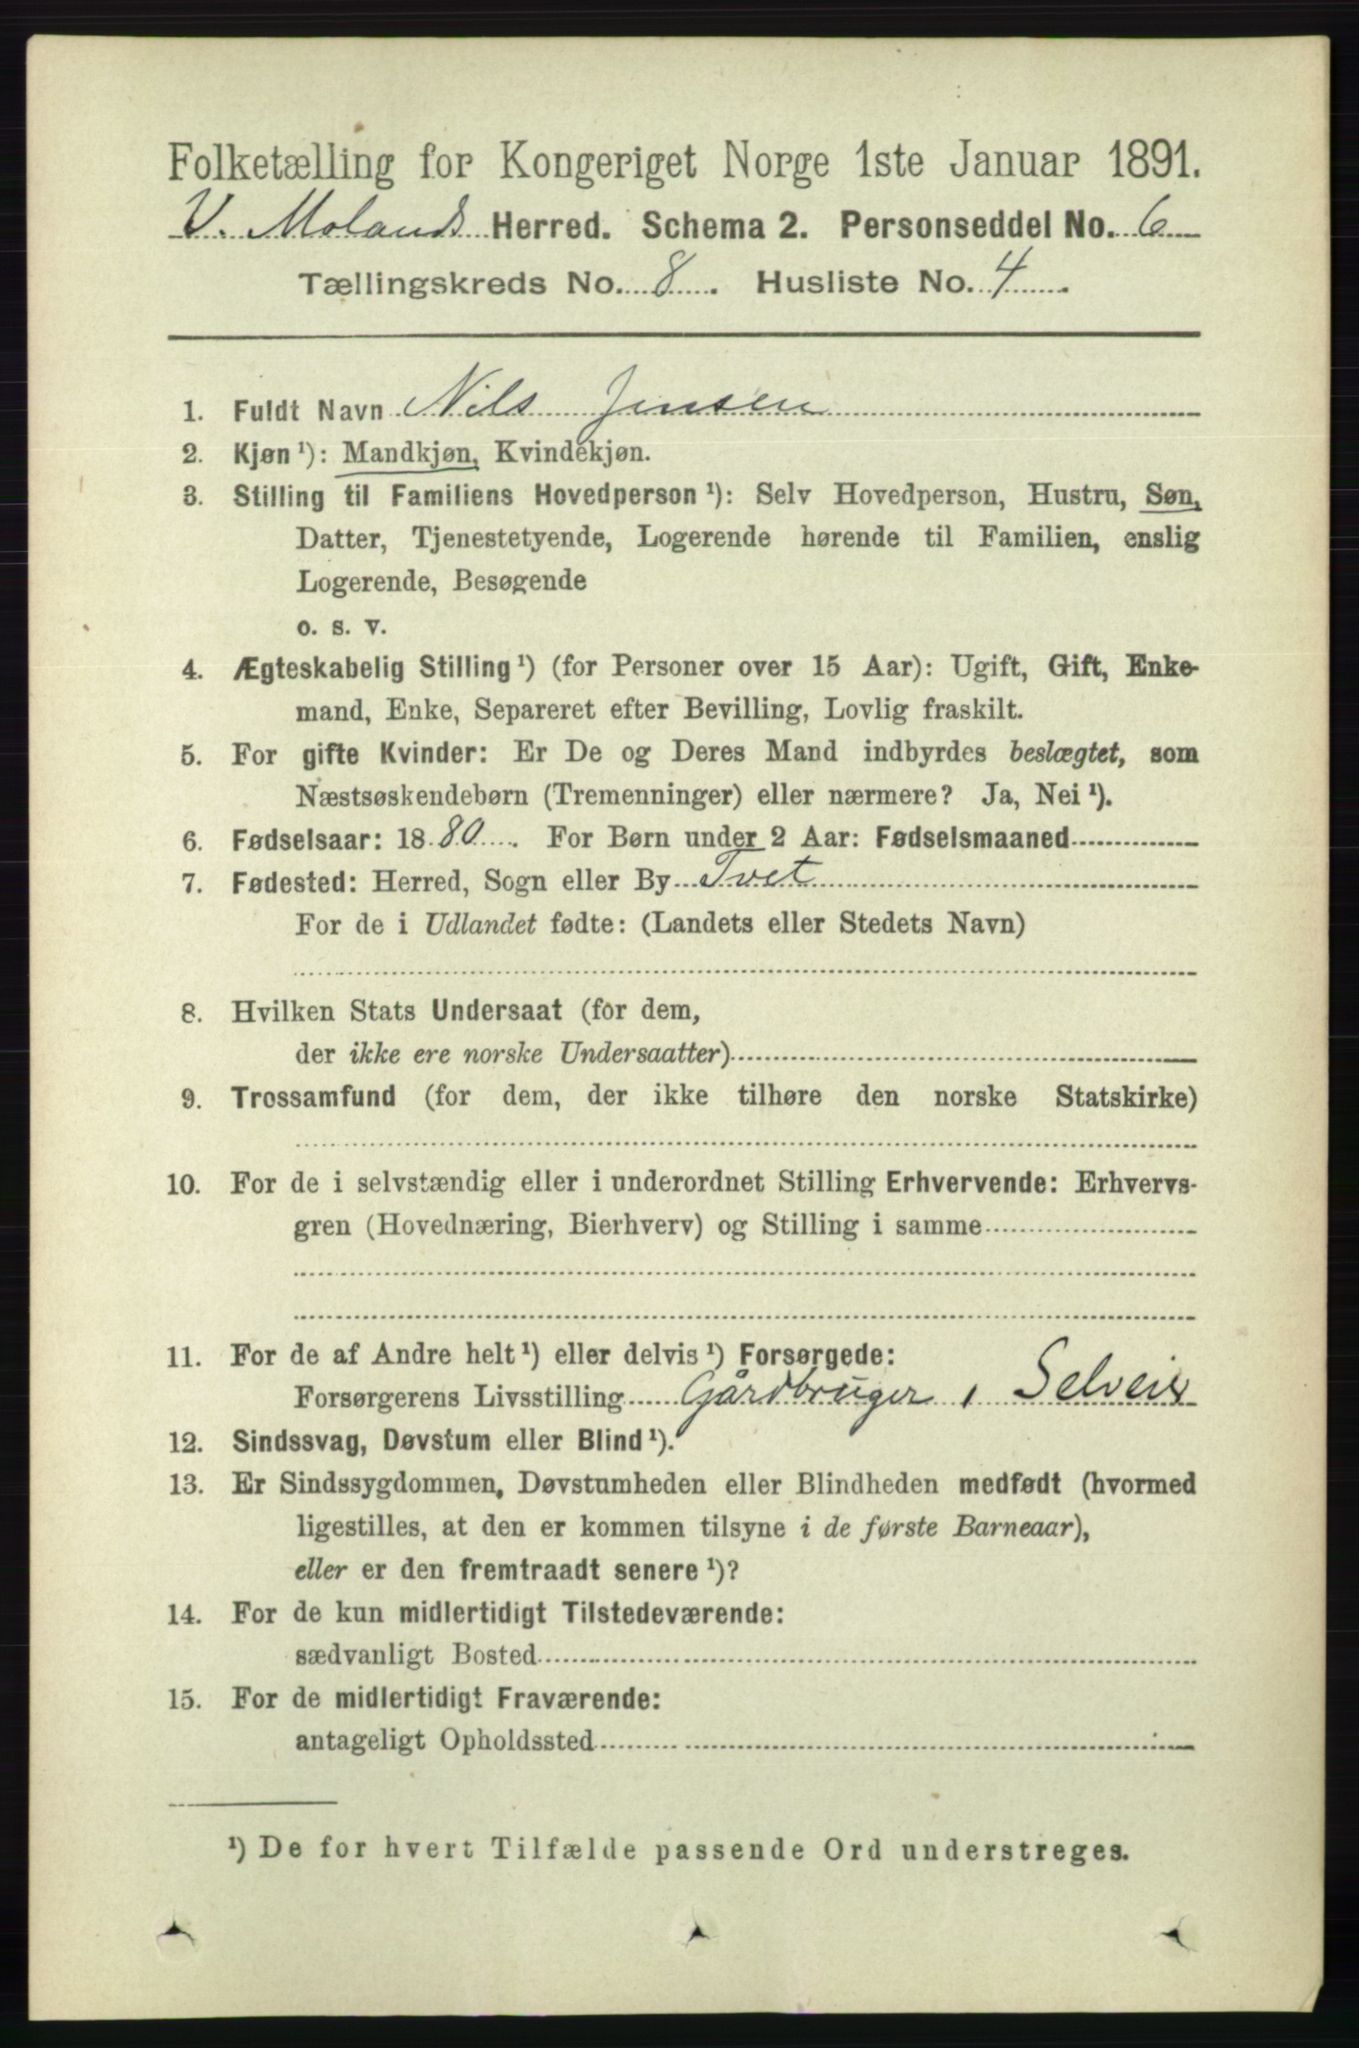 Folketælling for Kongeriget Norge 1ste Januar 1891.
V. Molands Herred. Schema 2. Personseddel No. 6
Tællingskreds No. 8. Husliste No. 4.
1. Fuldt Navn Nils Jensen
2. Kjøn ¹): Mandkjøn, Kvindekjøn.
3. Stilling til Familiens Hovedperson ¹): Selv Hovedperson, Hustru, Søn,
Datter, Tjenestetyende, Logerende hørende til Familien, enslig
Logerende, Besøgende
o. s. v.
4. Ægteskabelig Stilling ¹) (for Personer over 15 Aar): Ugift, Gift, Enke-
mand, Enke, Separeret efter Bevilling, Lovlig fraskilt.
5. For gifte Kvinder: Er De og Deres Mand indbyrdes beslægtet, som
Næstsøskendebørn (Tremenninger) eller nærmere? Ja, Nei ¹).
6. Fødselsaar: 1880. For Børn under 2 Aar: Fødselsmaaned
7. Fødested: Herred, Sogn eller By Tvet
For de i Udlandet fødte: (Landets eller Stedets Navn)
8. Hvilken Stats Undersaat (for dem,
der ikke ere norske Undersaatter)
9. Trossamfund (for dem, der ikke tilhøre den norske Statskirke)
10. For de i selvstændig eller i underordnet Stilling Erhvervende: Erhvervs-
gren (Hovednæring, Bierhverv) og Stilling i samme
11. For de af Andre helt ¹) eller delvis ¹) Forsørgede:
Forsørgerens Livsstilling Gårdbruger, Selveier
12. Sindssvag, Døvstum eller Blind ¹).
13. Er Sindssygdommen, Døvstumheden eller Blindheden medfødt (hvormed
ligestilles, at den er kommen tilsyne i de første Barneaar),
eller er den fremtraadt senere ¹)?
14. For de kun midlertidigt Tilstedeværende:
sædvanligt Bosted
15. For de midlertidigt Fraværende:
antageligt Opholdssted
¹) De for hvert Tilfælde passende Ord understreges.